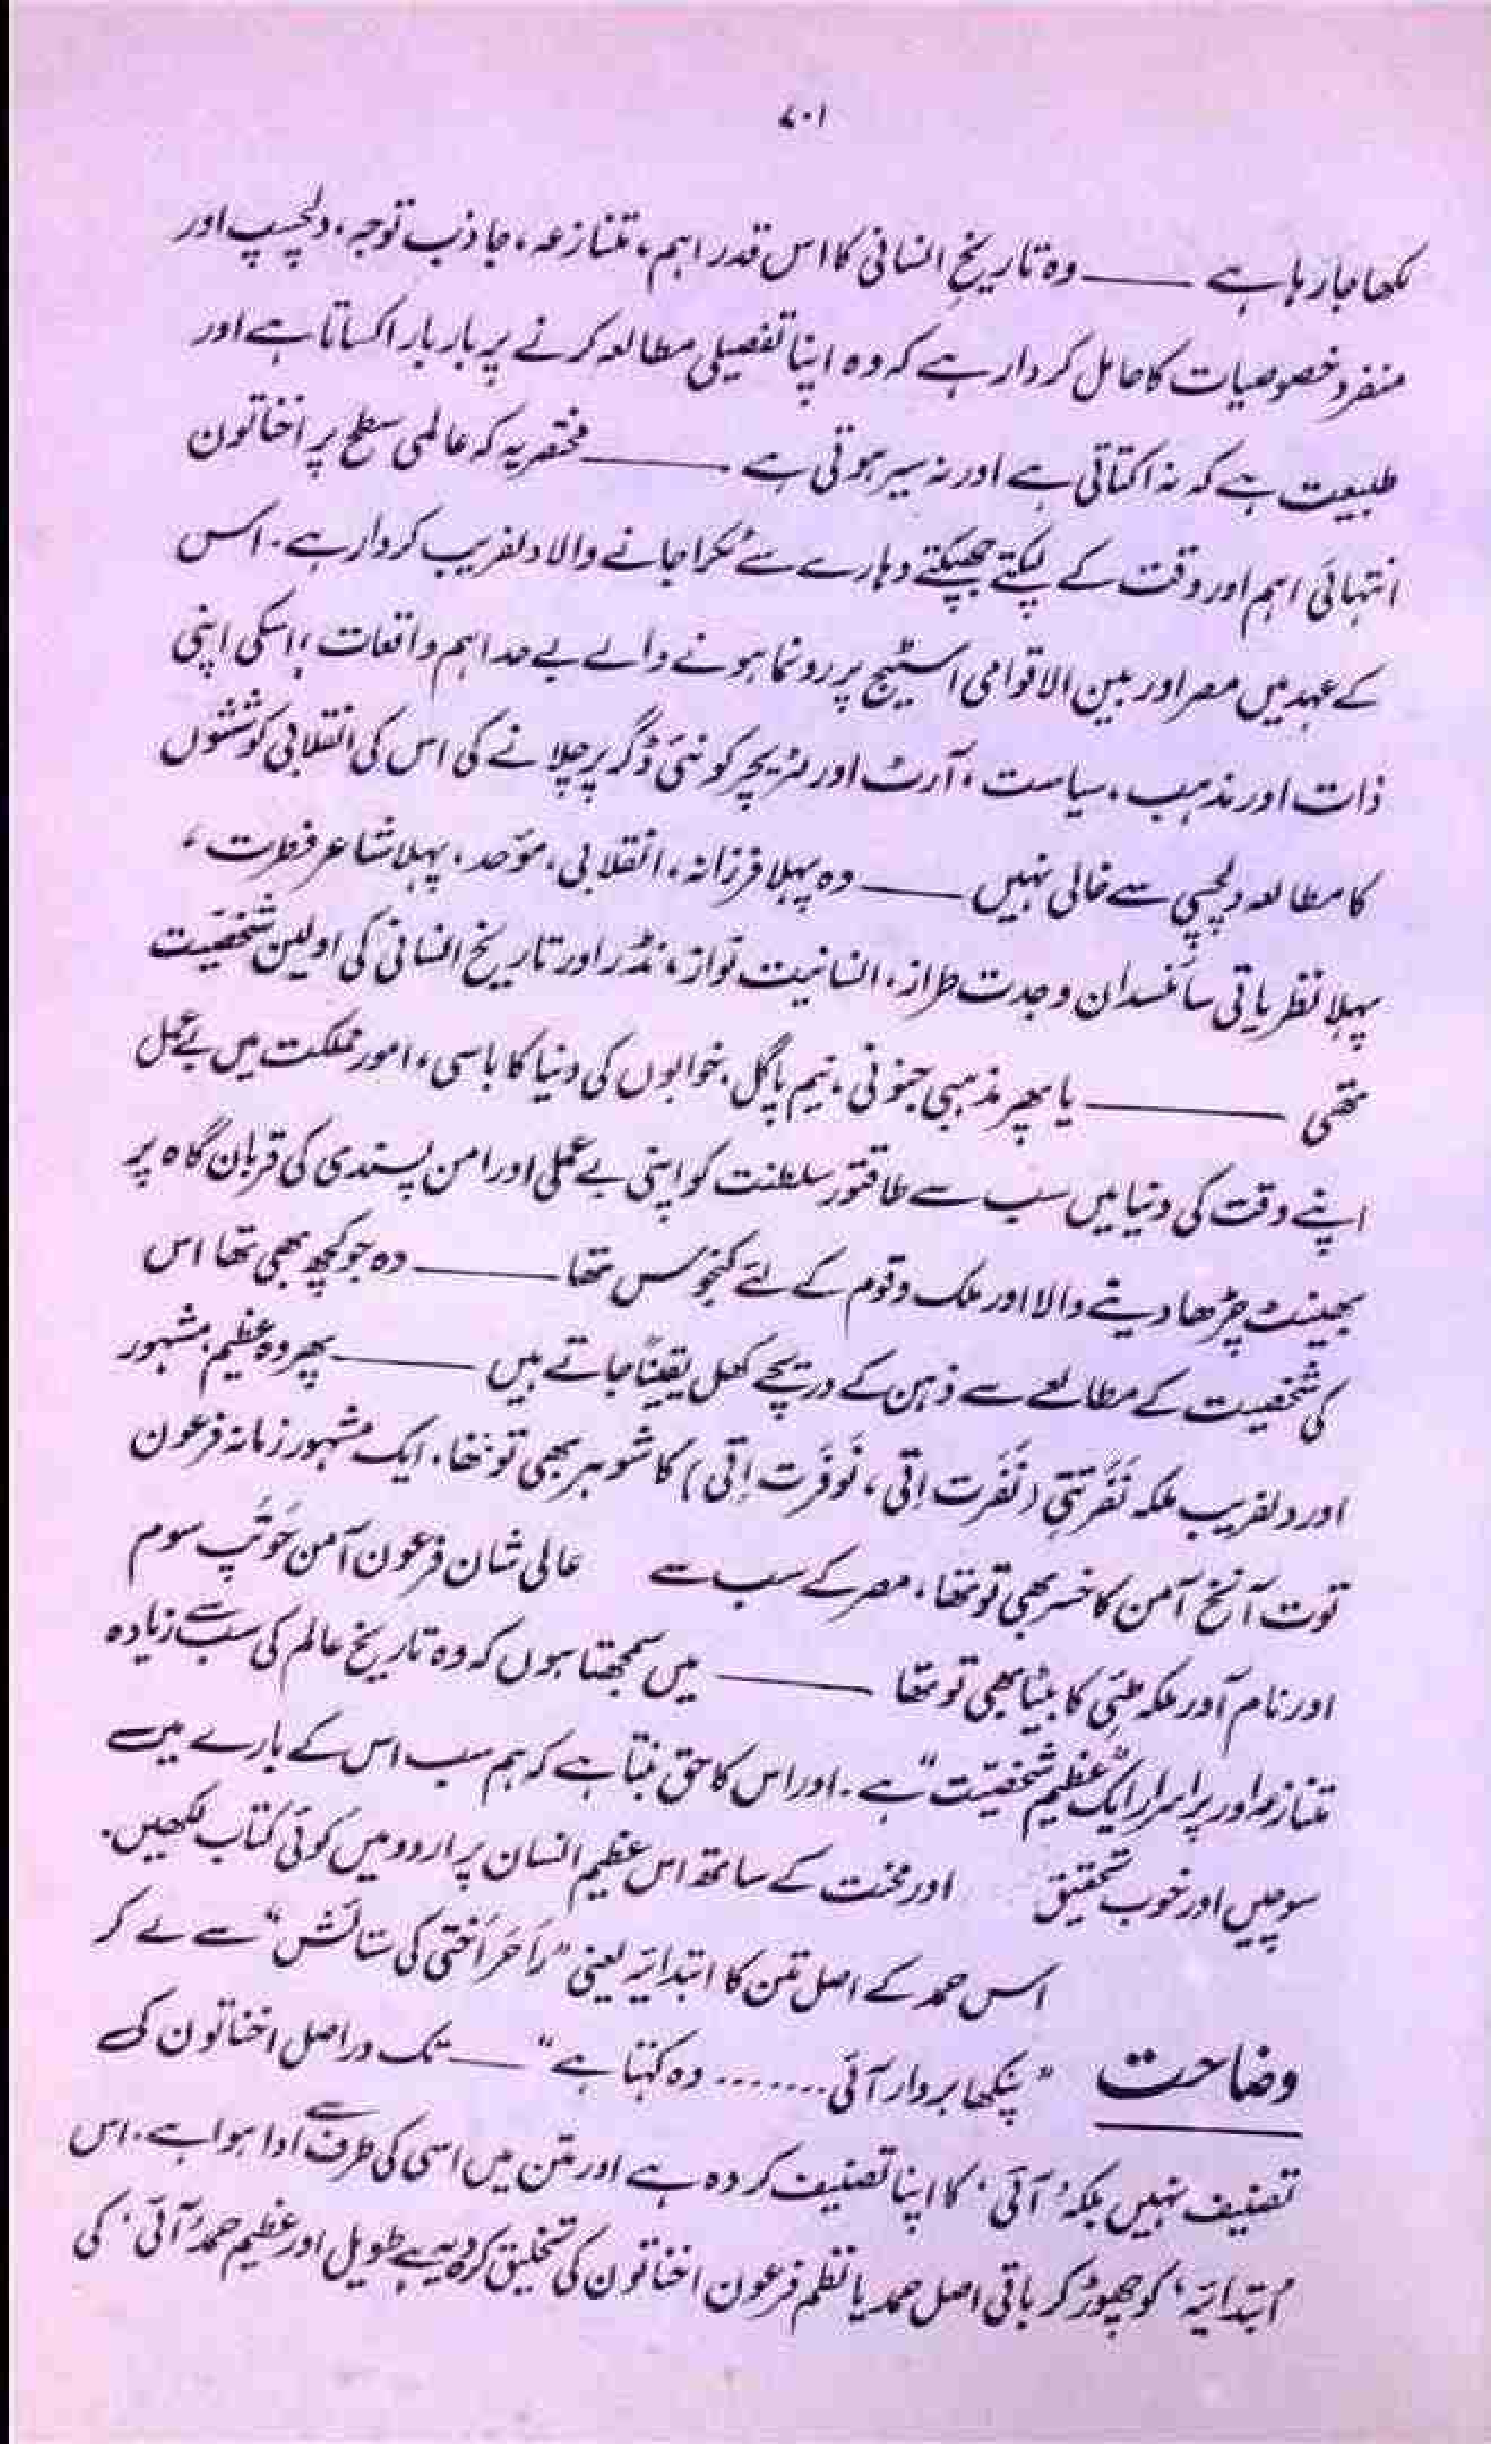 ۷۰۱
لکھا جا رہا ہے ——— وہ تاریخِ انسانی کا اس قدر اہم، متنازعہ، جاذب توجہ، دلچسپ اور
منفرد خصوصیات کا حامل کردار ہے کہ وہ اپنا تفصیلی مطالعہ کرنے پر بار بار اکساتا ہے اور
طبیعت ہے کہ نہ اکتاتی ہے اور نہ سیر ہوتی ہے ——— مختصر یہ کہ عالمی سطح پر اخناتون
انتہائی اہم اور وقت کے لپکتے جھپکتے دہارے سے ٹکرا جانے والا دلفریب کردار ہے۔ اس
کے عہد میں مصر اور بین الاقوامی اسٹیج پر رونما ہونے والے بے حد اہم واقعات، اسکی اپنی
ذات اور مذہب، سیاست، آرٹ اور لٹریچر کو نئی ڈگر پر چلانے کی اس کی انقلابی کوششوں
کا مطالعہ دلچسپی سے خالی نہیں ——— وہ پہلا فرزانہ، انقلابی، موّحد، پہلا شاعر فطرت،
پہلا نظریاتی سائنسدان و جدت طراز، انسانیت نواز، نڈر اور تاریخ انسانی کی اولین شخصیّت
تھی ——— یا پھر مذہبی جنونی، نیم پاگل، خوابوں کی دنیا کا باسی، امور مملکت میں بے عمل
اپنے وقت کی دنیا میں سب سے طاقتور سلطنت کو اپنی بے عملی اور امن پسندی کی قربان گاہ پر
بھینٹ چڑھا دینے والا اور ملک و قوم کے لئے کنجوس تھا ——— وہ جو کچھ بھی تھا اس
کی شخصیت کے مطالعے سے ذہن کے دریچے کھل یقیناً جاتے ہیں ——— پھر وہ عظیم، مشہور
اور دلفریب ملکہ نَفرتتی (نَفَرت اِتی، نَوفَرت اِتی) کا شوہر بھی تو تھا، ایک مشہور زمانہ فرعون
توت آنخ آمن کا خسر بھی تو تھا، مصر کے سب سے عالی شان فرعون آمن حَوتَپ سوم
اور نام آور ملکہ طئی کا بیٹا بھی تو تھا ——— میں سمجھتا ہوں کہ وہ تاریخ عالم کی سب سے زیادہ
متنازعہ اور پراسرار ایک "عظیم شخصیّت" ہے۔ اور اس کا حق بنتا ہے کہ ہم سب اس کے بارے میں
سوچیں اور خوب تحقیق اور محنت کے ساتھ اس عظیم انسان پر اردو میں کوئی کتاب لکھیں۔
اس حمد کے اصل متن کا ابتدائیہ یعنی "رَاحَرَاَختی کی ستائش" سے لے کر
وضاحت "پنکھا بردار آئی ....... وہ کہتا ہے" — تک دراصل اخناتون کی
تصنیف نہیں بلکہ 'آئی' کا اپنا تصنیف کردہ ہے اور متن میں اسی کی طرف سے ادا ہوا ہے۔ اس
'ابتدائیہ' کو چھوڑ کر باقی اصل حمد یا نظم فرعون اخناتون کی تخلیق کردہ ہے یہ طویل اور عظیم حمد 'آئی' کی